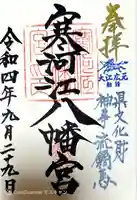 奉拝
大江広元
勧請
県文化財
神事流鏑馬
寒河江八幡宮
令和四年九月二十九日